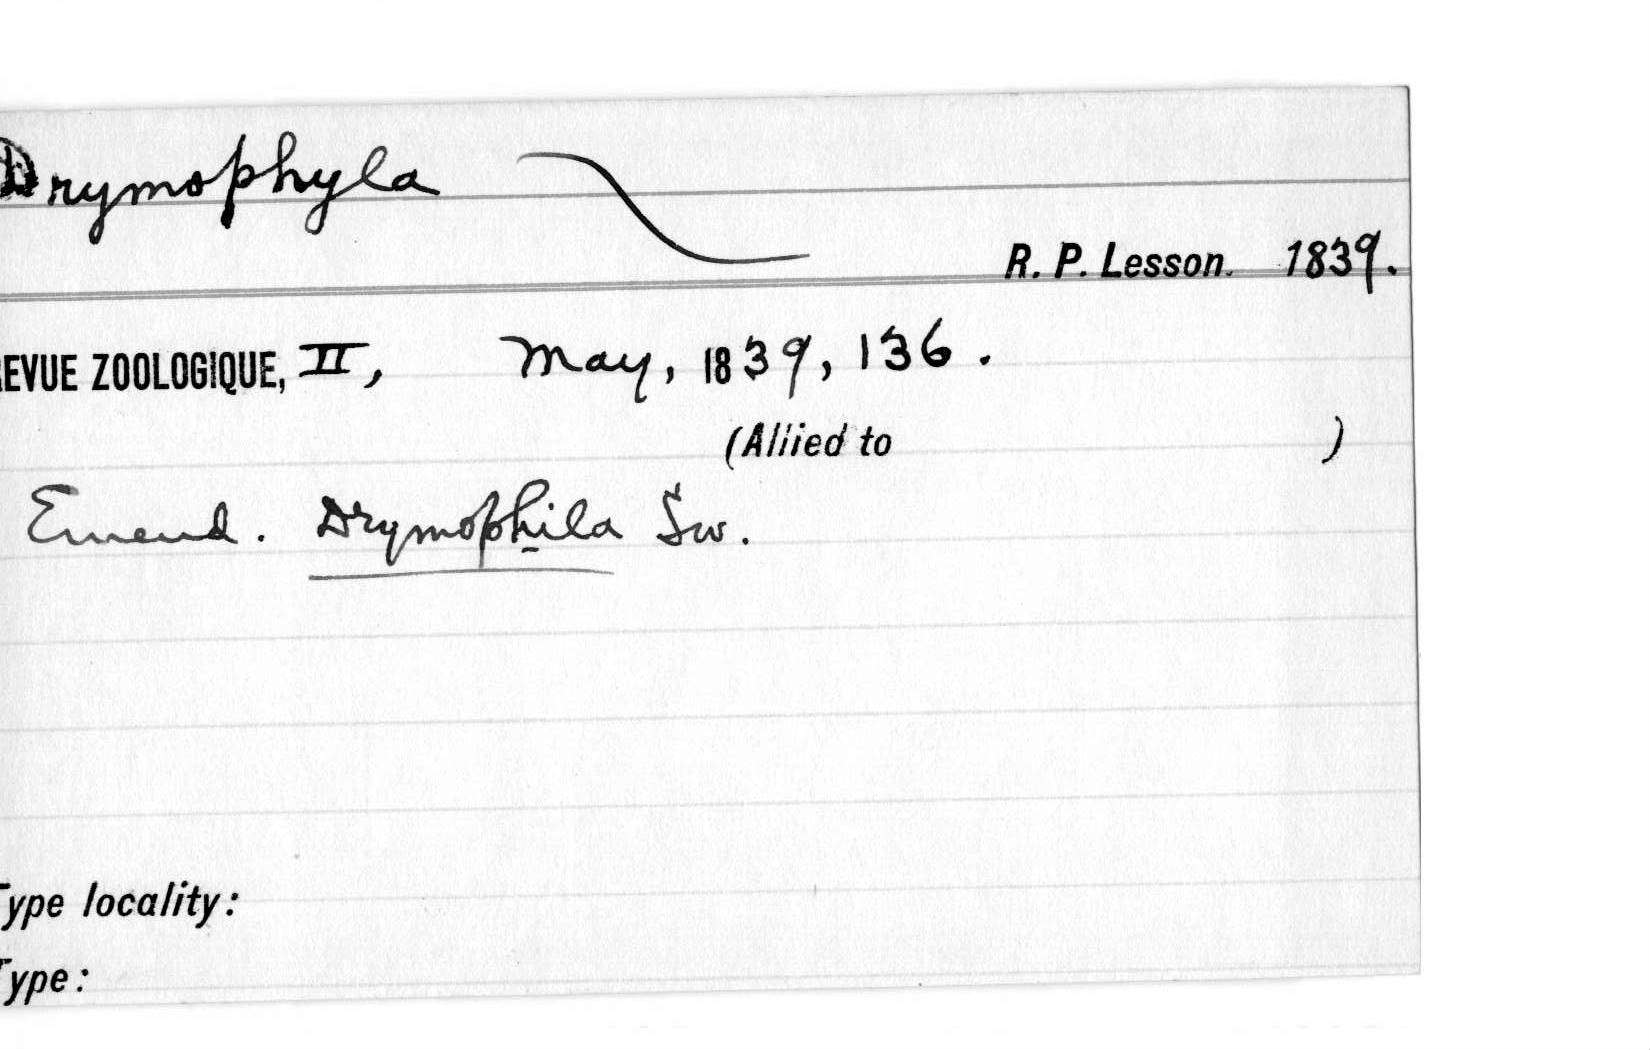 Drymophyla
R. P. Lesson. 1839.
EVUE ZOOLOGIQUE, II, May, 1839, 136.
(Allied to )
Emend. Drymophila Sw.
Type locality:
Type: